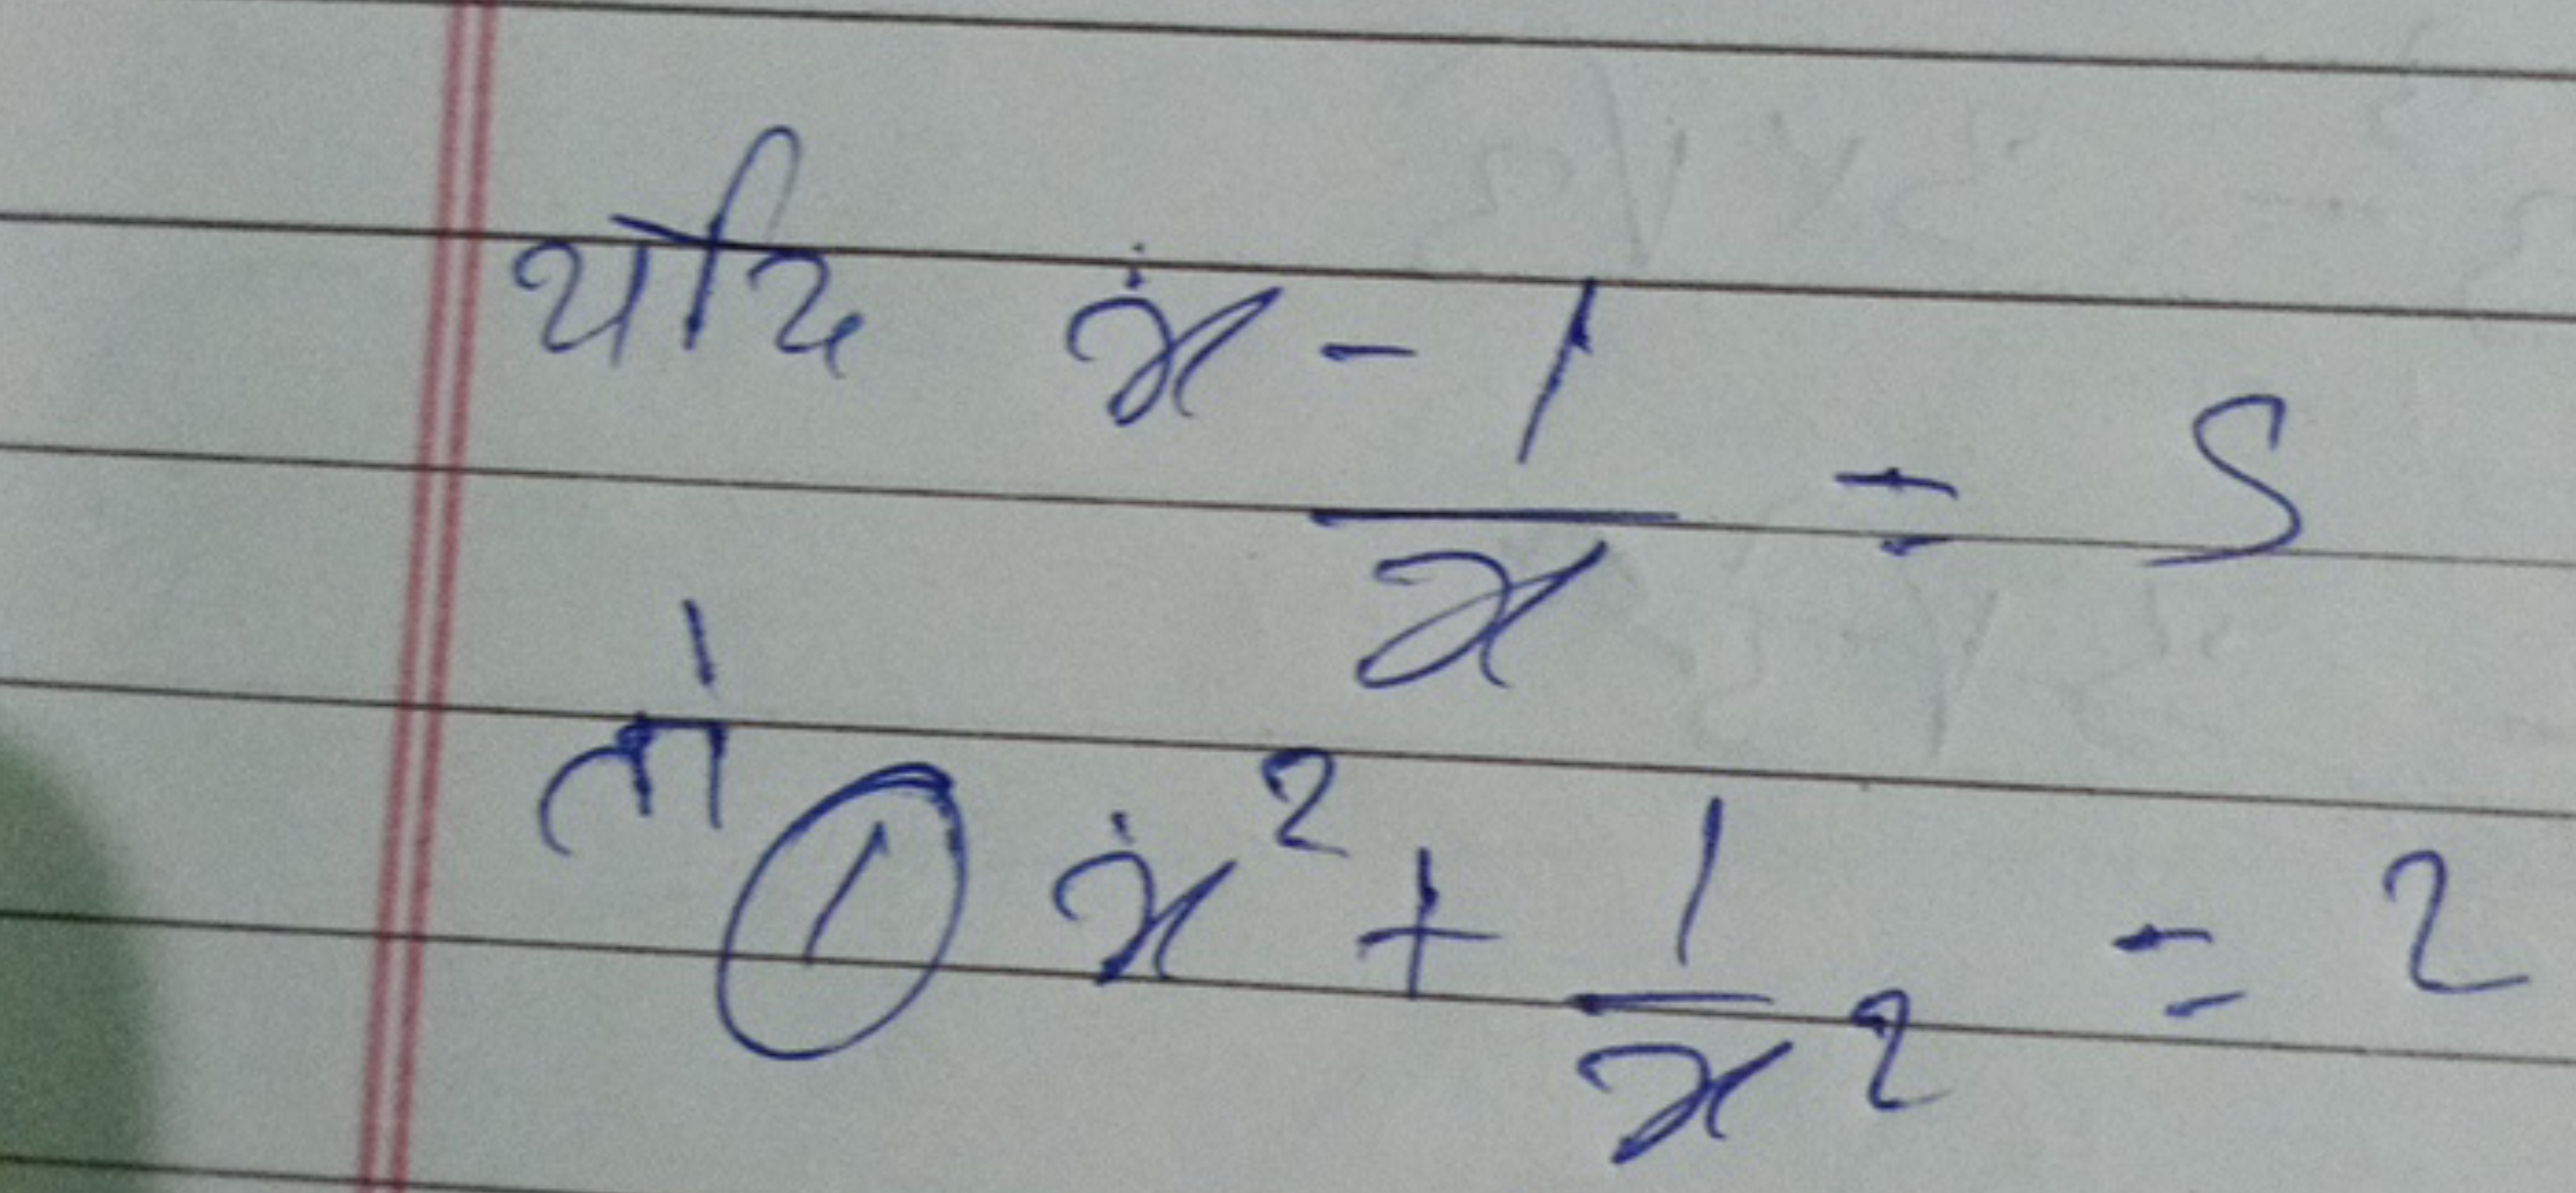 यदि x - 1/x = 5
तो ① x² + 1/x² = 2